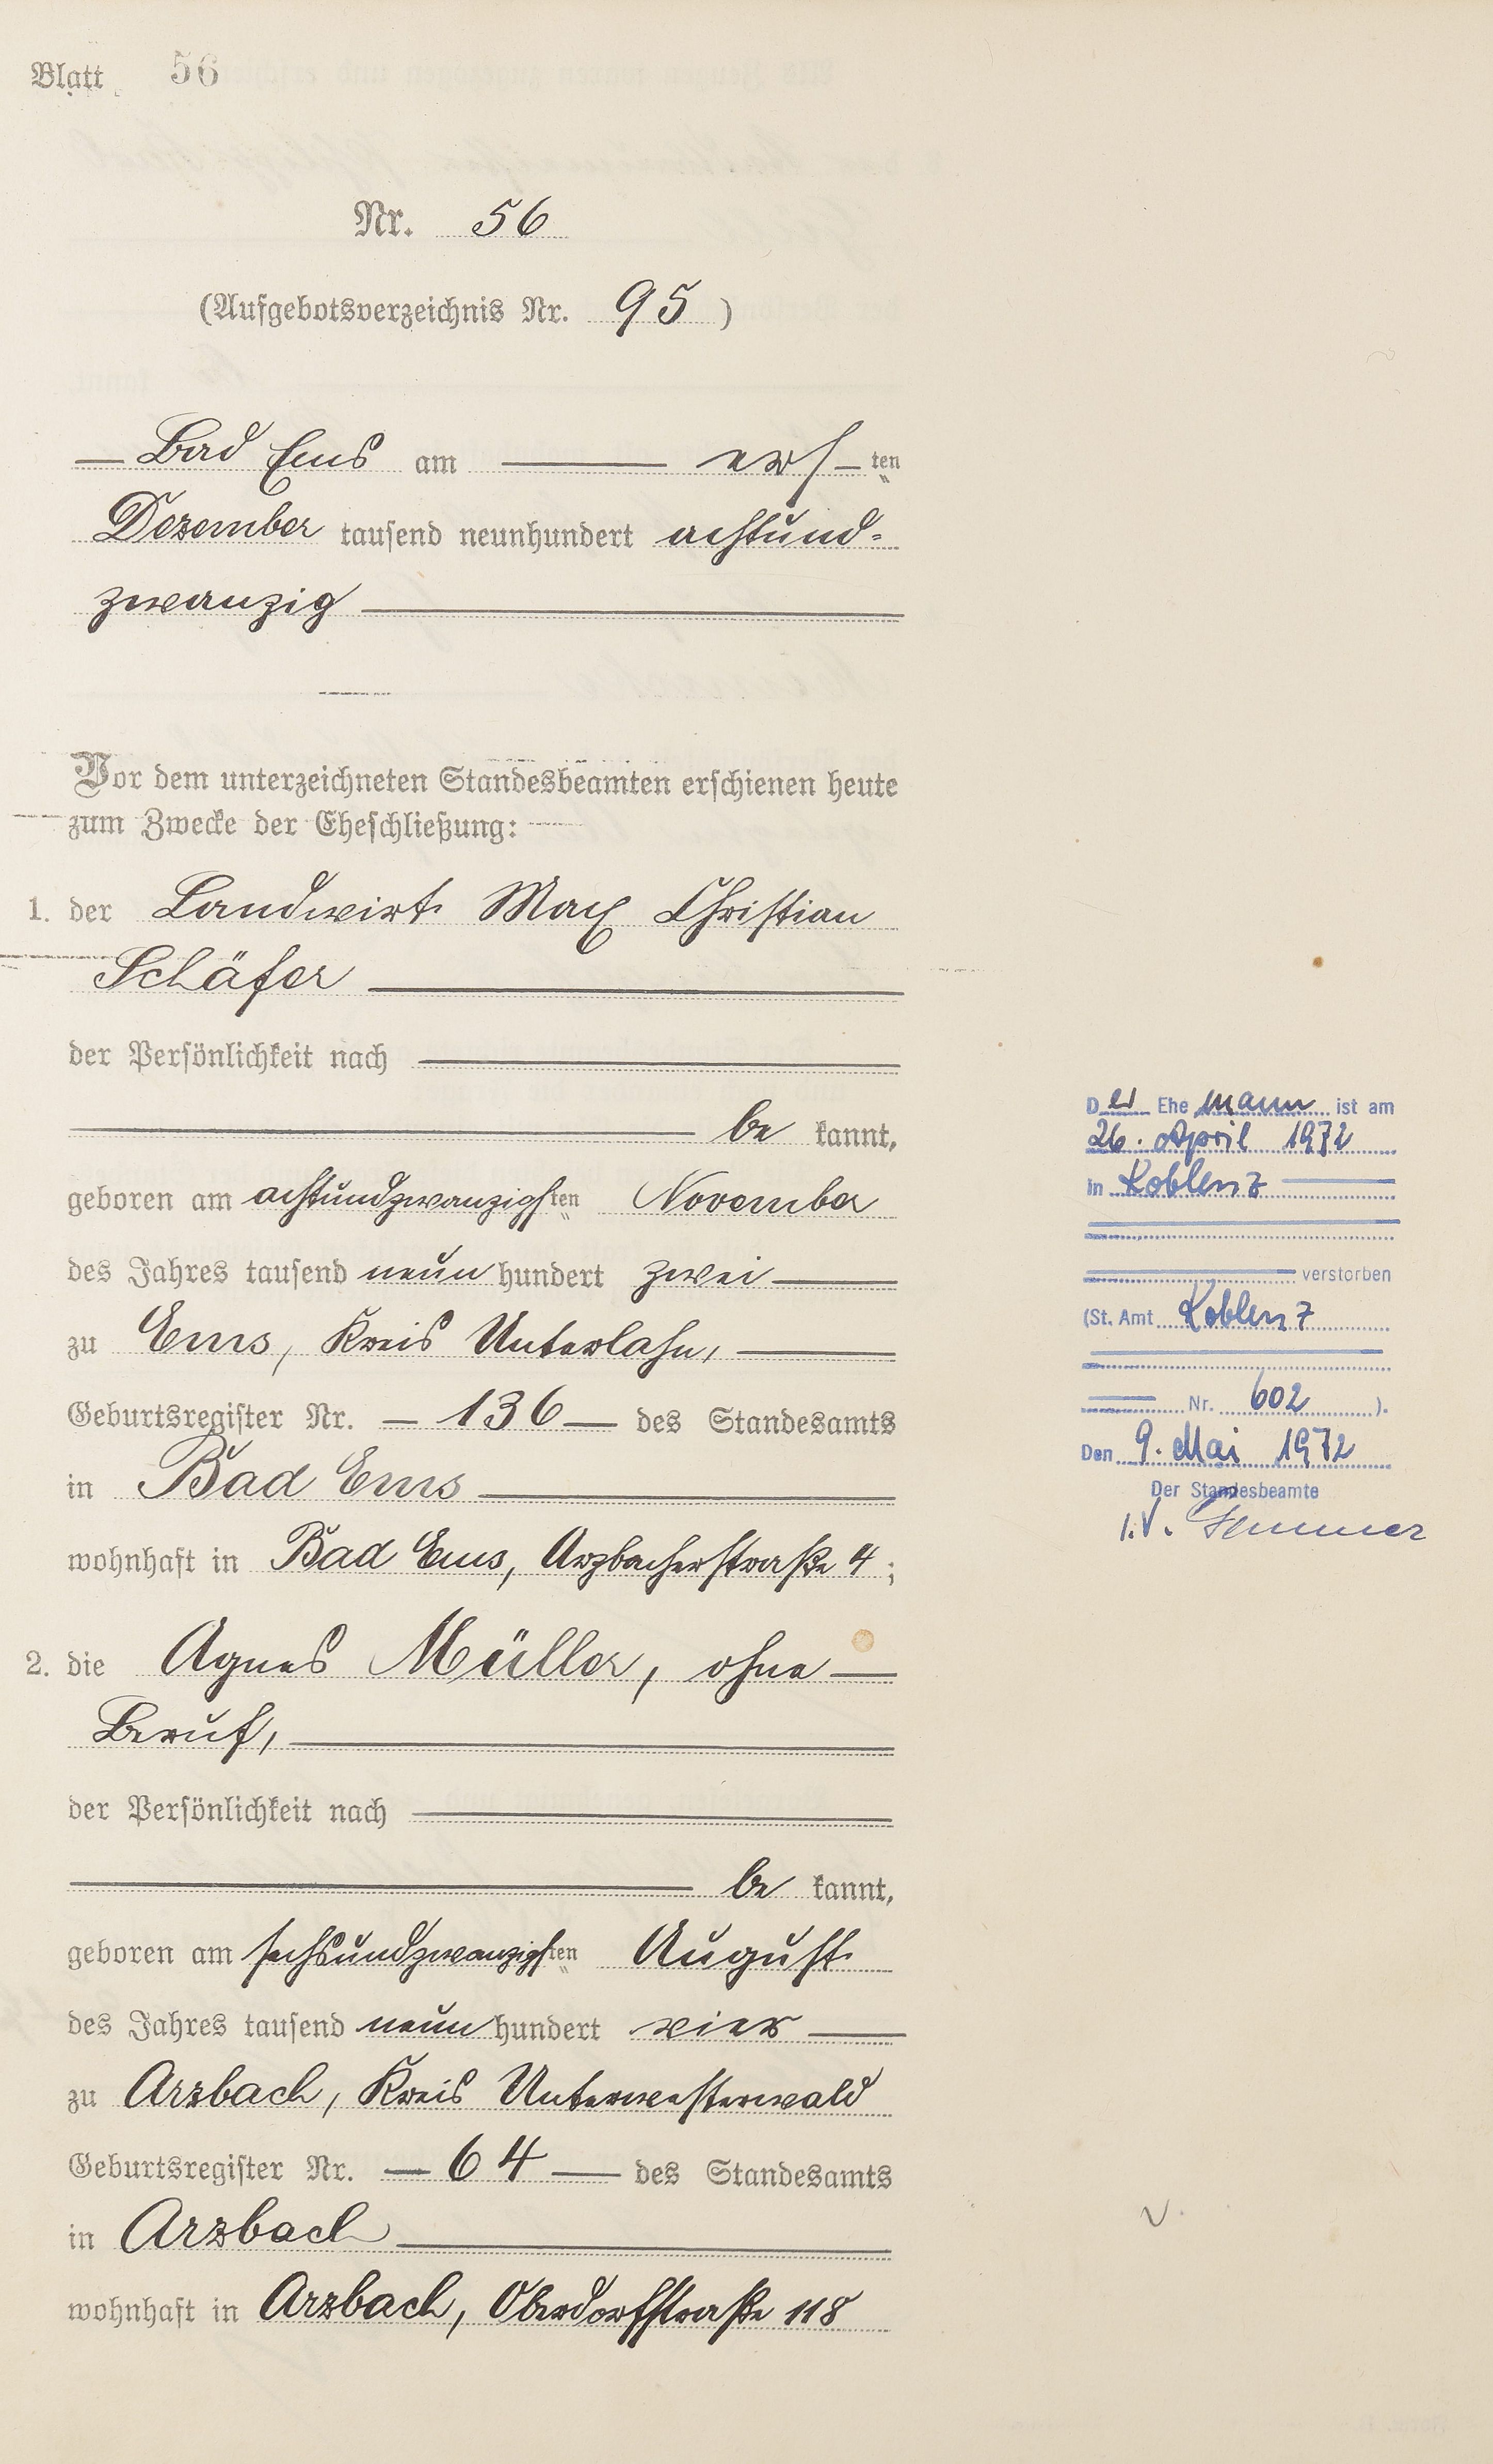 Blatt 56
Nr. 56
(Aufgebotsverzeichnis Nr. 95)
Bad Ems am ersten
Dezember tausend neunhundert achtund-
zwanzig
Vor dem unterzeichneten Standesbeamten erschienen heute
zum Zwecke der Eheschließung:
1. der Landwirt Max Christian
Schäfer
der Persönlichkeit nach
be kannt,
geboren am achtundzwanzigsten November
des Jahres tausend neun hundert zwei
zu Ems, Kreis Unterlahn,
Geburtsregister Nr. 136 des Standesamts
in Bad Ems
wohnhaft in Bad Ems, Arzbacherstraße 4;
2. die Agnes Müller, ohne
Beruf,
der Persönlichkeit nach
be kannt,
geboren am sechsundzwanzigsten August
des Jahres tausend neun hundert vier
zu Arzbach, Kreis Unterwesterwald
Geburtsregister Nr. 64 des Standesamts
in Arzbach
wohnhaft in Arzbach, Oberdorfstraße 118
Der Ehemann ist am
26. April 1972
in Koblenz
verstorben
(St. Amt Koblenz
Nr. 602).
Den 9. Mai 1972
Der Standesbeamte
I.V.